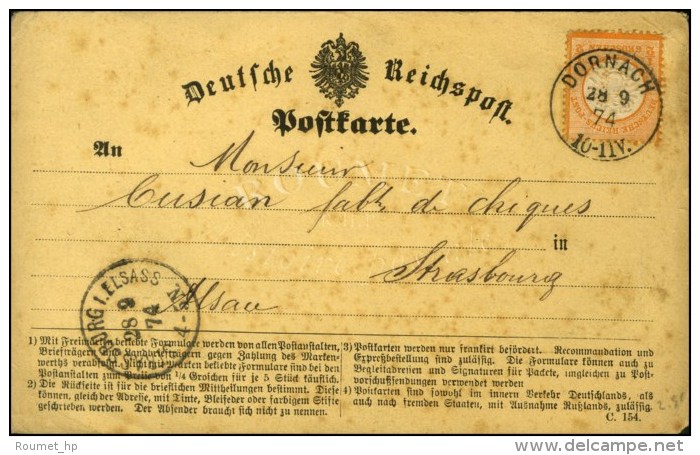 Deutsche Reichspost.
Postkarte.
DORNACH
28 9
74
10-11V.
An
Monsieur
Cusian fabt. de chiques
in
Strasbourg
Alsau
BURG I. ELSASS
28 9
74
4-
1) Mit Freimarken beklebte Formulare werden von allen Postanstalten,
Briefträgern und Landbriefträgern gegen Zahlung des Marken-
werths verabfolgt. Nicht mit Marken beklebte Formulare sind bei den
Postanstalten zum Preise von ¼ Groschen für je 5 Stück käuflich.
2) Die Rückseite ist für die brieflichen Mittheilungen bestimmt. Diese
können, gleich der Adresse, mit Tinte, Bleifeder oder farbigem Stifte
geschrieben werden. Der Absender braucht sich nicht zu nennen.
3) Postkarten werden nur frankirt befördert. Recommandation und
Expreßbestellung sind zulässig. Die Formulare können auch zu
Begleitadressen und Signaturen für Packete, ungleichen zu Post-
vorschußsendungen verwendet werden
4) Postkarten sind sowohl im innern Verkehr Deutschlands, als
auch nach fremden Staaten, mit Ausnahme Rußlands, zulässig.
C. 154.
© Roumet_hp
delcampe.net